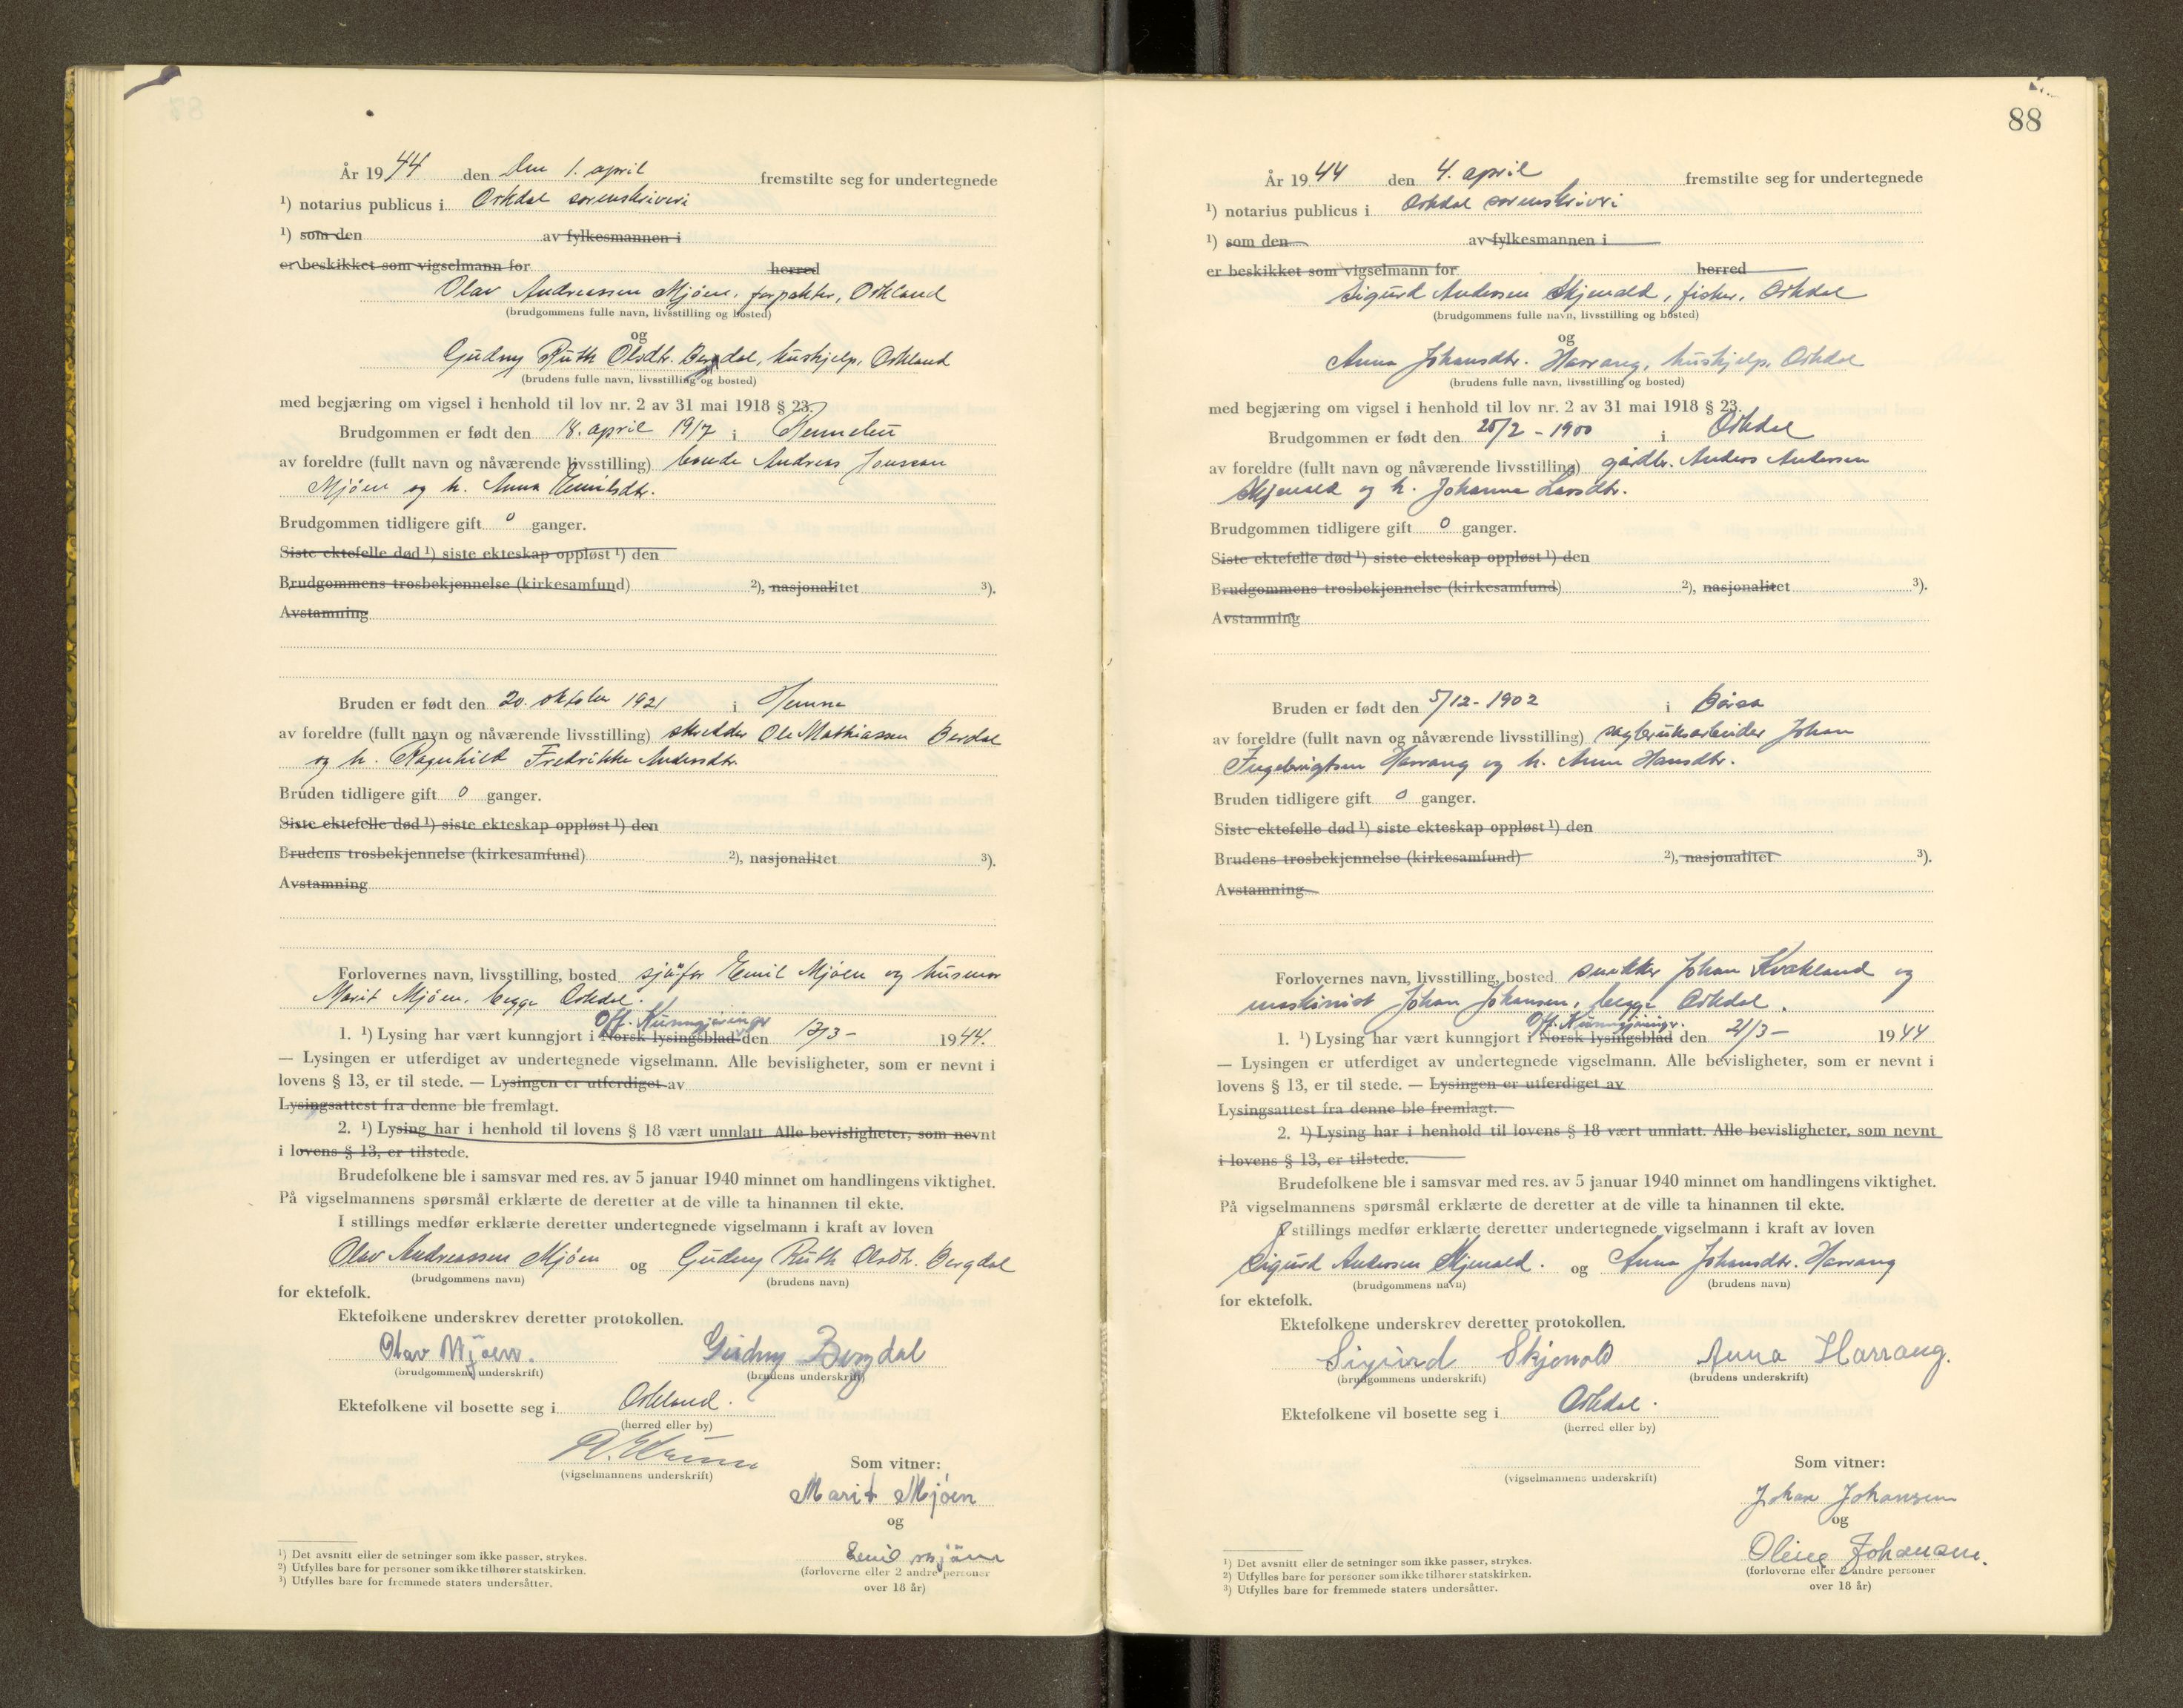 År 1944 den den 1. april fremstilte seg for undertegnede
¹) notarius publicus i Orkdal sorenskriveri
¹) som den av fylkesmannen i
er beskikket som vigselmann for herred
Olav Andreassen Mjøen, forpakter, Orkland
(brudgommens fulle navn, livsstilling og bosted)
og
Gudny Ruth Olsdtr. Bergdal, hushjelp, Orkland
(brudens fulle navn, livsstilling og bosted)
med begjæring om vigsel i henhold til lov nr. 2 av 31 mai 1918 § 23.
Brudgommen er født den 18. april 1917 i Rennebu
av foreldre (fullt navn og nåværende livsstilling) bonde Andreas Jonsson
Mjöen og h. Anna Emilsdtr.
Brudgommen tidligere gift 0 ganger.
Siste ektefelle død ¹) siste ekteskap oppløst ¹) den
Brudgommens trosbekjennelse (kirkesamfund) ²), nasjonalitet ³).
Avstamning
Bruden er født den 20. oktober 1921 i Hemne
av foreldre (fullt navn og nåværende livsstilling) skredder Ole Mathiassen Berdal
og h. Ragnhild Fredrikke Andersdtr.
Bruden tidligere gift 0 ganger.
Siste ektefelle død ¹) siste ekteskap oppløst ¹) den
Brudens trosbekjennelse (kirkesamfund) ²), nasjonalitet ³).
Avstamning
Forlovernes navn, livsstilling, bosted sjåför Emil Mjöen og husmor
Marit Mjöen, begge Orkdal.
Off. Kunngjøringer
1. ¹) Lysing har vært kunngjort i Norsk lysingsblad den 17/3 - 1944.
— Lysingen er utferdiget av undertegnede vigselmann. Alle bevisligheter, som er nevnt i
lovens § 13, er til stede. — Lysingen er utferdiget av
Lysingsattest fra denne ble fremlagt.
2. ¹) Lysing har i henhold til lovens § 18 vært unnlatt Alle bevisligheter, som nevnt
i lovens § 13, er tilstede.
Brudefolkene ble i samsvar med res. av 5 januar 1940 minnet om handlingens viktighet.
På vigselmannens spørsmål erklærte de deretter at de ville ta hinannen til ekte.
I stillings medfør erklærte deretter undertegnede vigselmann i kraft av loven
Olav Andreassen Mjöen og Gudny Ruth Olsdtr. Bergdal
(brudgommens navn) (brudens navn)
for ektefolk.
Ektefolkene underskrev deretter protokollen.
Olav Mjoen. Gudny Bergdal
(brudgommens underskrift) (brudens underskrift)
Ektefolkene vil bosette seg i Orkland.
(herred eller by)
(vigselmannens underskrift) Som vitner:
Marit Mjöen
og
Emil Mjöen
(forloverne eller 2 andre personer
over 18 år)
¹) Det avsnitt eller de setninger som ikke passer, strykes.
²) Utfylles bare for personer som ikke tilhører statskirken.
³) Utfylles bare for fremmede staters undersåtter.
88
År 1944 den 4. april fremstilte seg for undertegnede
¹) notarius publicus i Orkdal sorenskriveri
¹) som den av fylkesmannen i
er beskikket som vigselmann for herred
Sigurd Andersen Skjenald, fisker, Orkdal
(brudgommens fulle navn, livsstilling og bosted)
og
Anna Johansdtr. Harrang, hushjelp, Orkdal
(brudens fulle navn, livsstilling og bosted)
med begjæring om vigsel i henhold til lov nr. 2 av 31 mai 1918 § 23.
Brudgommen er født den 25/2 - 1900 i Orkdal
av foreldre (fullt navn og nåværende livsstilling) gårdbr. Anders Andersen
Skjenald og h. Johanna Larsdtr.
Brudgommen tidligere gift 0 ganger.
Siste ektefelle død ¹) siste ekteskap oppløst ¹) den
Brudgommens trosbekjennelse (kirkesamfund) ²), nasjonalitet ³).
Avstamning
Bruden er født den 5/12 - 1902 i Börsa
av foreldre (fullt navn og nåværende livsstilling) sagbruksarbeider Johan
Ingebrigtsen Harrang og h. Anne Hansdtr.
Bruden tidligere gift 0 ganger.
Siste ektefelle død ¹) siste ekteskap oppløst ¹) den
Brudens trosbekjennelse (kirkesamfund) ²), nasjonalitet ³).
Avstamning
Forlovernes navn, livsstilling, bosted snekker Johan Kvakland og
maskinist Johan Johansen, begge Orkdal.
Off. Kunngjøringr.
1. ¹) Lysing har vært kunngjort i Norsk lysingsblad den 21/3 - 1944
— Lysingen er utferdiget av undertegnede vigselmann. Alle bevisligheter, som er nevnt i
lovens § 13, er til stede. — Lysingen er utferdiget av
Lysingsattest fra denne ble fremlagt.
2. ¹) Lysing har i henhold til lovens § 18 vært unnlatt. Alle bevisligheter, som nevnt
i lovens § 13, er tilstede.
Brudefolkene ble i samsvar med res. av 5 januar 1940 minnet om handlingens viktighet.
På vigselmannens spørsmål erklærte de deretter at de ville ta hinannen til ekte.
I stillings medfør erklærte deretter undertegnede vigselmann i kraft av loven
Sigurd Andersen Skjenald. og Anna Johansdtr. Harrang
(brudgommens navn) (brudens navn)
for ektefolk.
Ektefolkene underskrev deretter protokollen.
Sigurd Skjenald Anna Harrang.
(brudgommens underskrift) (brudens underskrift)
Ektefolkene vil bosette seg i Orkdal.
(herred eller by)
(vigselmannens underskrift) Som vitner:
Johan Johansen
og
Oline Johansen.
(forloverne eller 2 andre personer
over 18 år)
¹) Det avsnitt eller de setninger som ikke passer, strykes.
²) Utfylles bare for personer som ikke tilhører statskirken.
³) Utfylles bare for fremmede staters undersåtter.